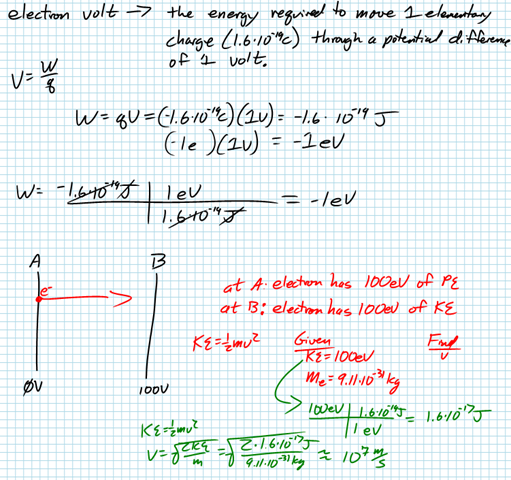 electron volt → the energy required to move 1 elementary
charge (1.6·10⁻¹⁹C) through a potential difference
of 1 volt.
V = W/q
W = qV = (-1.6·10⁻¹⁹C)(1V) = -1.6·10⁻¹⁹ J
(-1e)(1V) = -1eV
W = -1.6·10⁻¹⁹J | 1eV / 1.6·10⁻¹⁹J = -1eV
A B
e⁻
0V 100V
at A: electron has 100eV of PE
at B: electron has 100eV of KE
KE = ½mv² Given Find
KE = 100eV v
Me = 9.11·10⁻³¹kg
100eV | 1.6·10⁻¹⁹J / 1eV = 1.6·10⁻¹⁷J
KE = ½mv²
V = √(2KE/m) = √(2·1.6·10⁻¹⁷J / 9.11·10⁻³¹kg) ≈ 10⁷ m/s